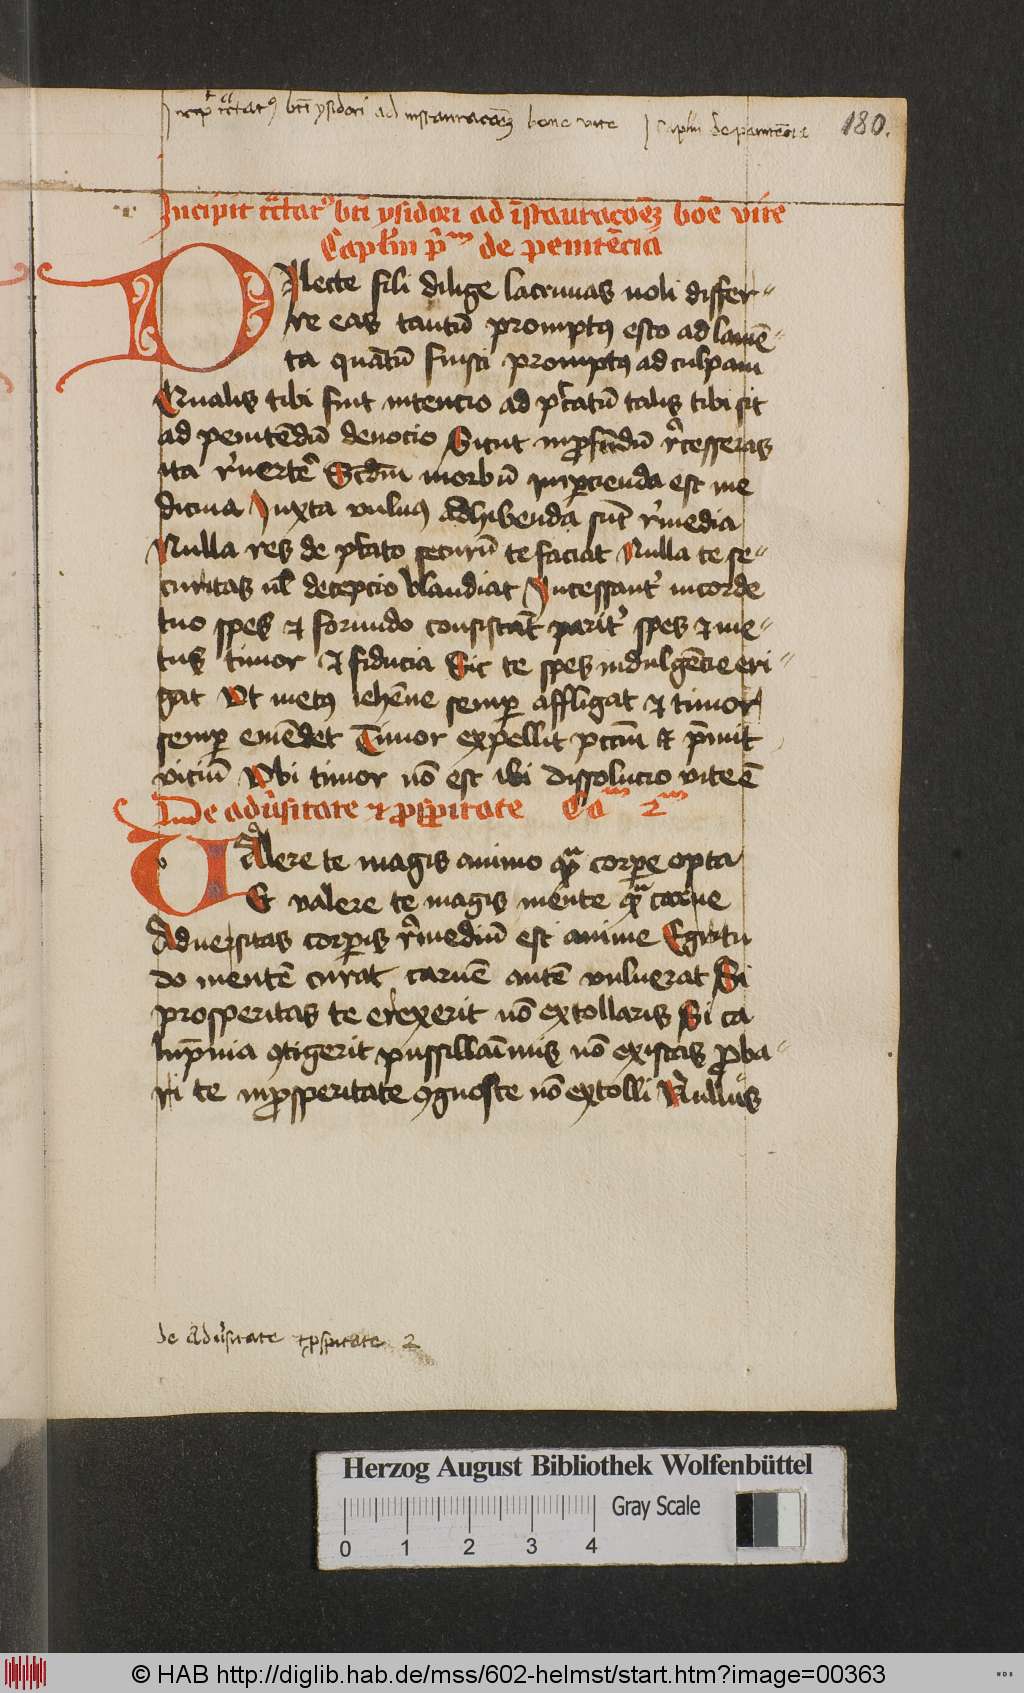 Incipit tractat9 bti ysidori ad instauracoēz bone vite Caplm de penitēcia
180.
Incipit tc̄tat9 bti ysidori ad īstauracoēz boē vite
Caplm pm de penitēcia
Dilecte fili dilige lacrimas noli differ-
re eas tantū prompt9 esto ad lamē-
ta quātū fuisti prompt9 ad culpam
Qualis tibi fuit intencio ad pccatū talis tibi sit
ad penitēdiū deuocio Sicut in profūdū recesseras
ita reuertere Scdm morbū inpercienda est me
dicina Iuxta vuln9 adhibenda sūt remedia
Nulla res de pccato securū te faciat Nulla te se-
curitas ul decepcio blandiat Incessant in corde
tuo spes et formido consistāt parit spes et me-
tus timor et fiducia Sic te spes indulgēcie eri-
gat Vt met9 iehēne semp affligat et timor
semp emēdet Timor expellit pccm et pmit
vitiū Vbi timor nō est ibi dissolucio vite ē
De aduersitate et prosperitate Cam 2m
Dolere te magis animo qz corpe opta
Et valere te magis mente qz carne
Aduersitas corpis remediū est anime Egritu
do mentē curat carnē autē vulnerat Si
prosperitas te erexerit nō extollaris Si ca
lupnia 9tigerit pussillaīmis nō existas proba-
ri te in prosperitate 9gnosce nō extolli Nullius
de aduersitate et prosperitate 2
Herzog August Bibliothek Wolfenbüttel
Gray Scale
0 1 2 3 4
© HAB http://diglib.hab.de/mss/602-helmst/start.htm?image=00363